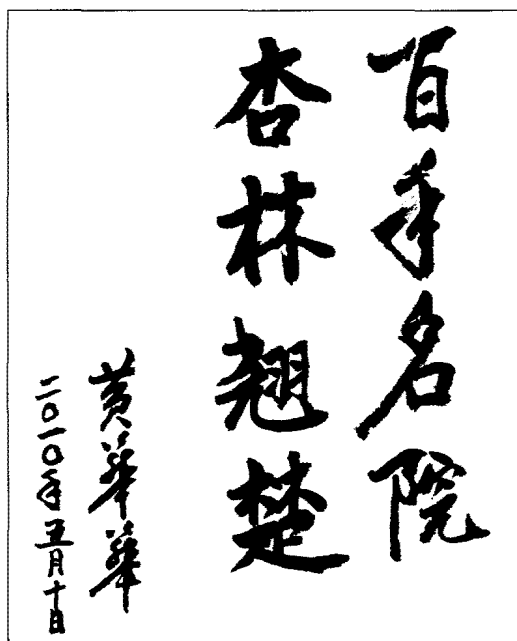 百年名院
杏林翘楚
黄華華
二〇一〇年五月十日